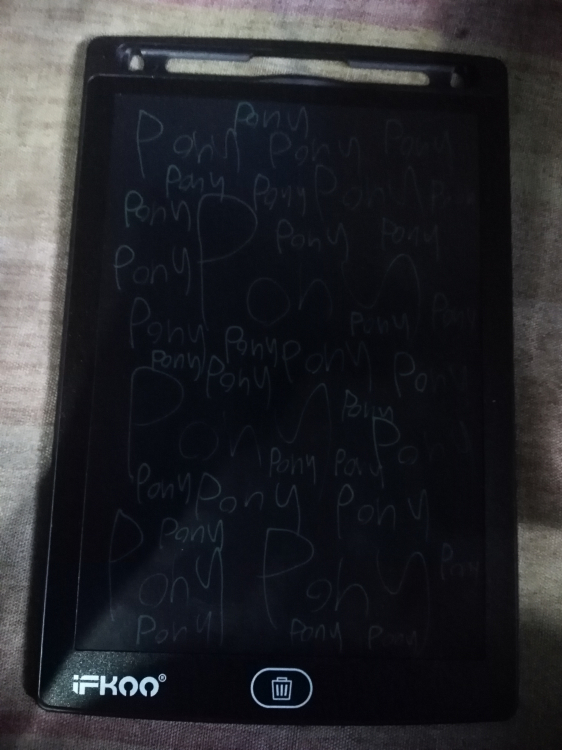 Pony
Pony Pony Pony
Pony Pony Pony Pony
Pony Pony Pony Pony
Pony Pony
Pony Pony Pony
Pony Pony Pony
Pony Pony Pony
Pony Pony
Pony Pony Pony
Pony Pony Pony
Pony
Pony Pony Pony
Pony Pony Pony
iFKOO®